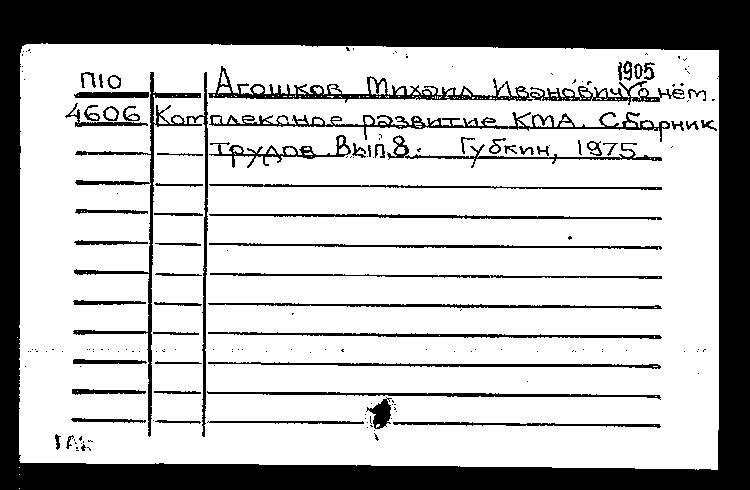 1905
П10 Агошков, Михаил Иванович. О нём.
4606 Комплексное развитие КМА. Сборник
трудов. Вып. 8. Губкин, 1975.
ГАК